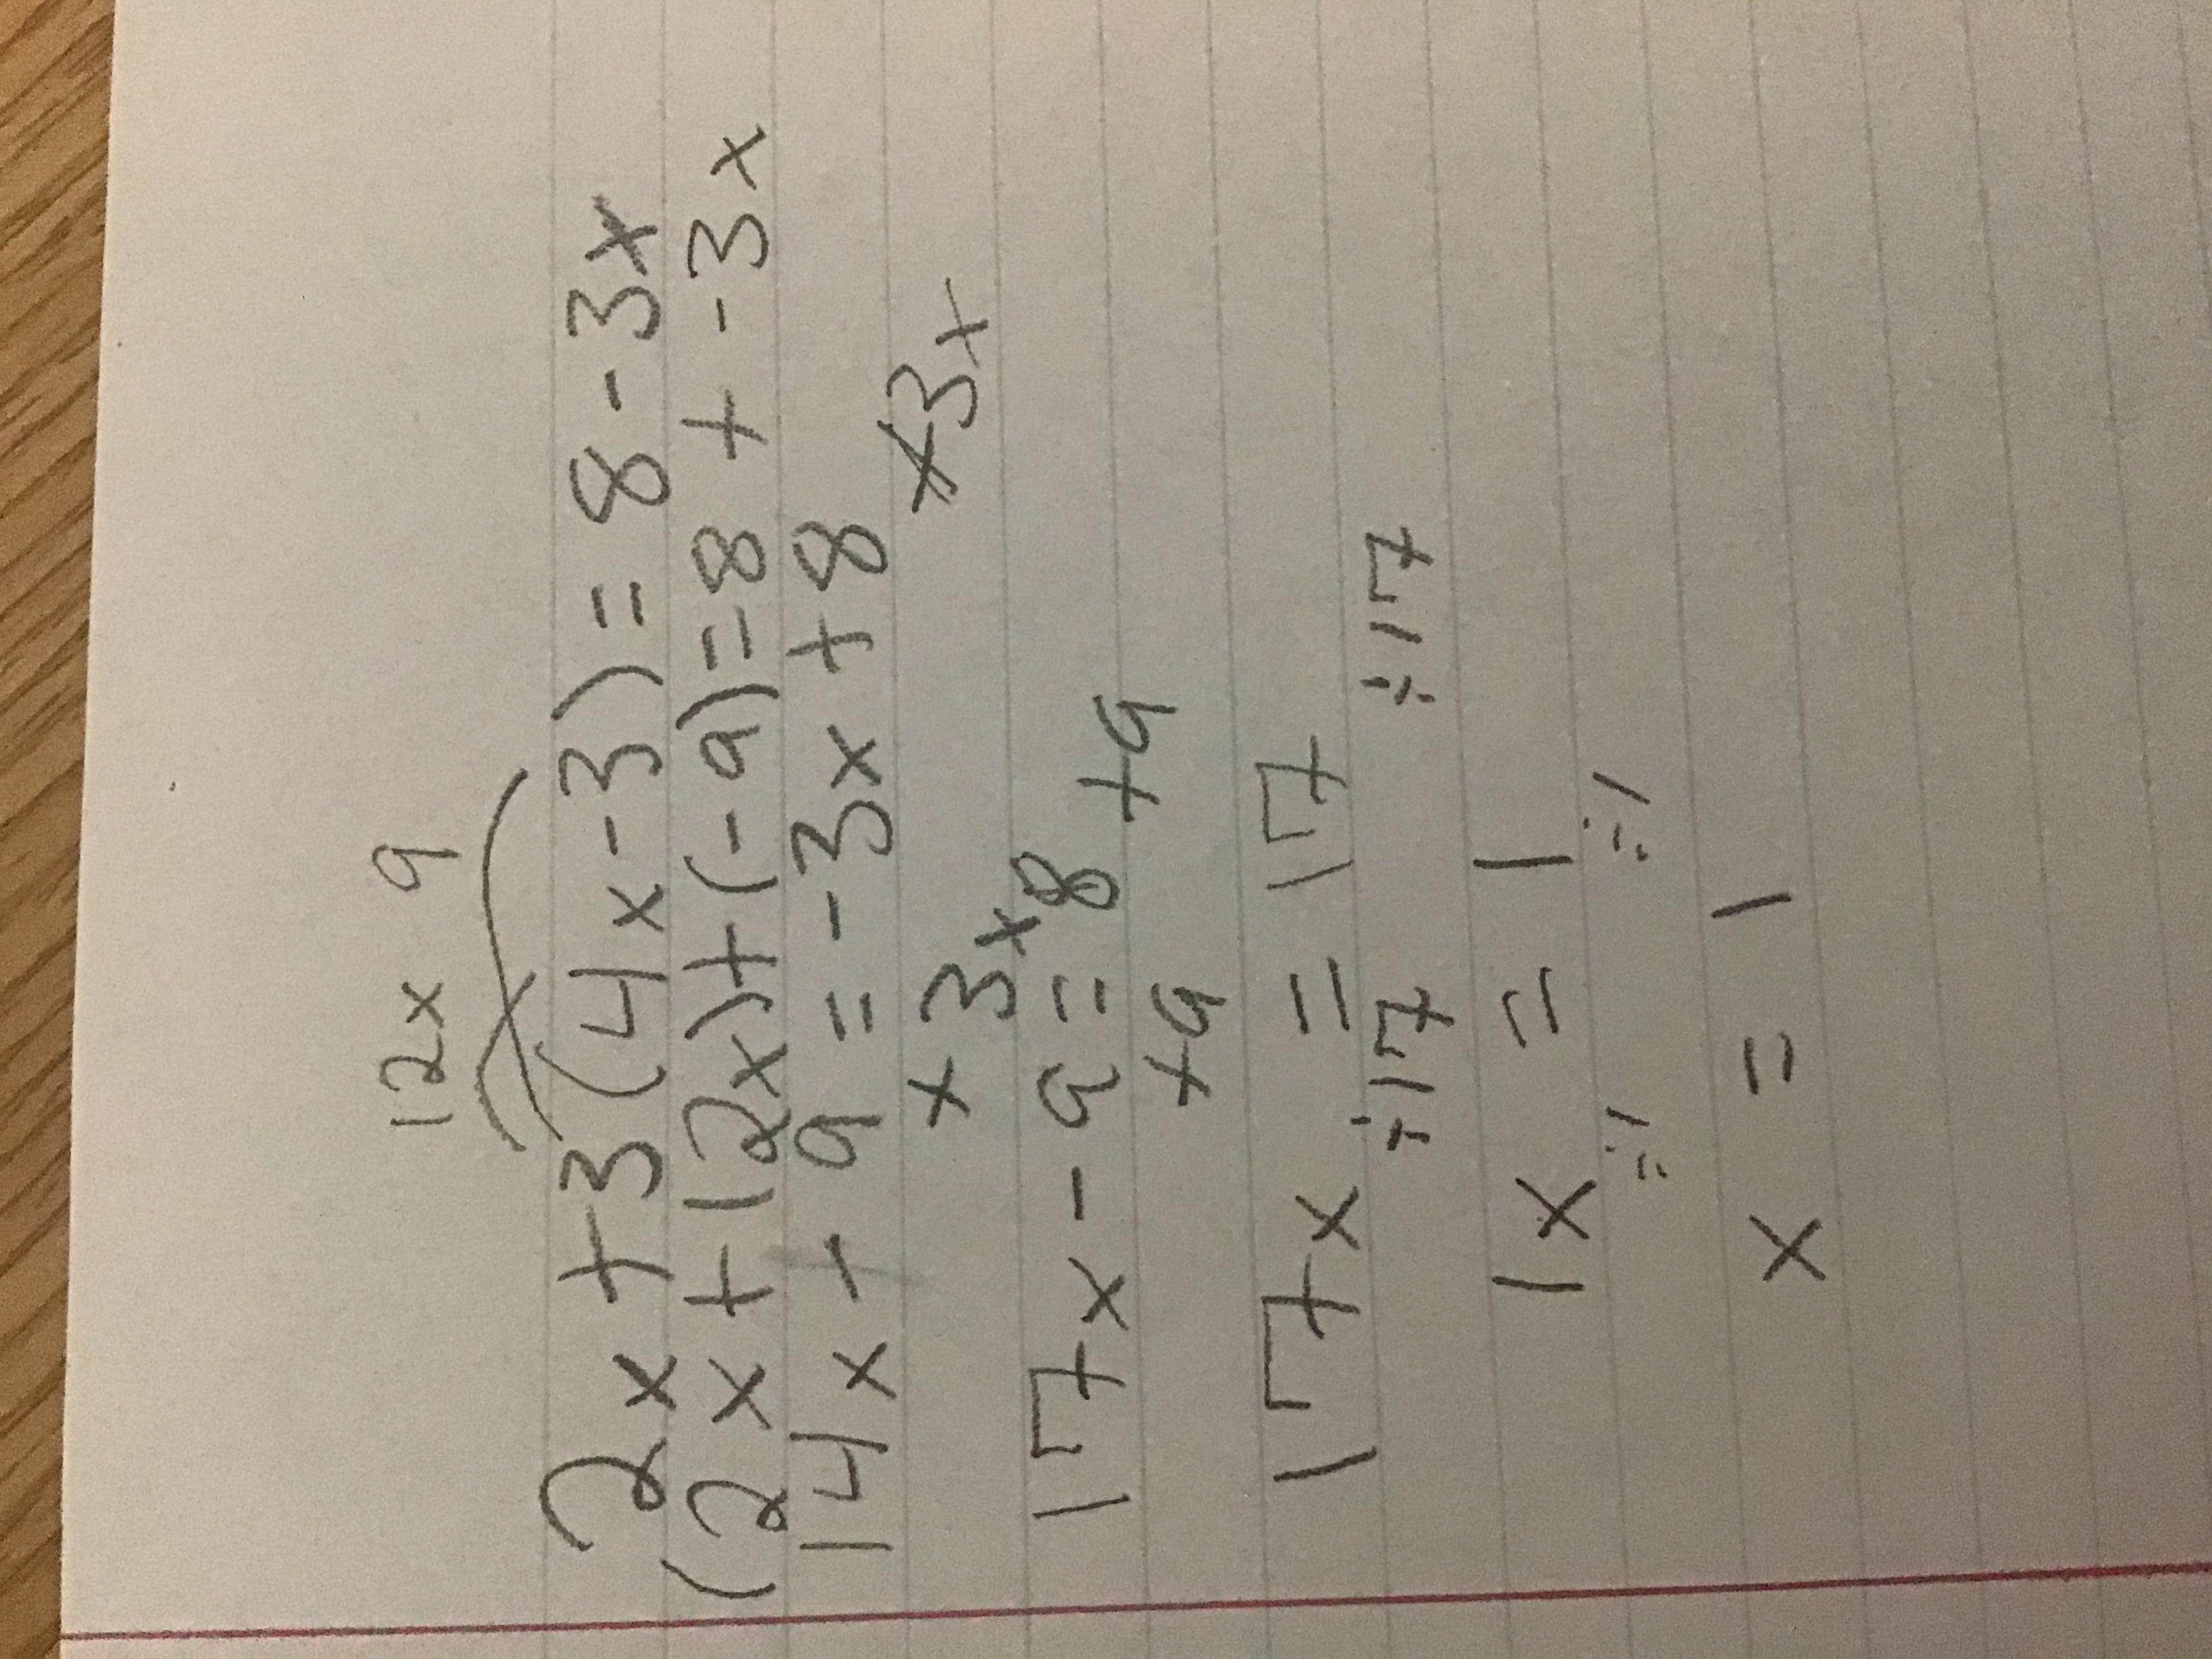 12x 9
2x +3(4x-3)=8-3x
(2x+12x)+(-9)=8+-3x
14x-9=-3x+8
+3x +3x
17x-9=8
+9 +9
17x = 17
÷17 ÷17
1x = 1
÷1 ÷1
x = 1